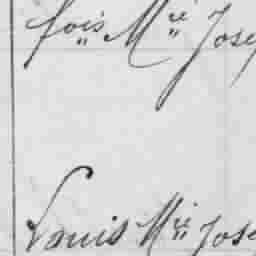 fois Mie Jose
Louis Mie Jose